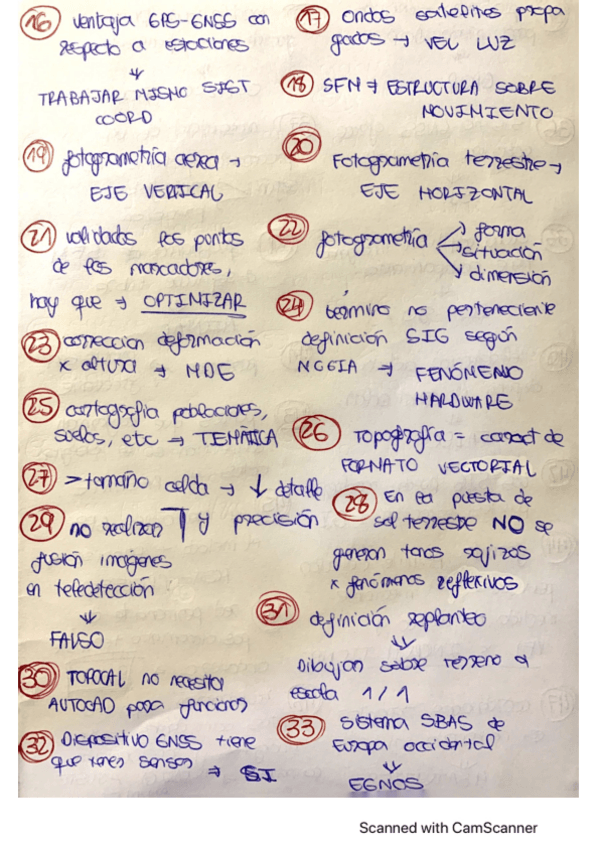 16 ventaja GPS-GNSS con
respecto a estaciones
↓
TRABAJAR MISMO SIST
COORD
17 ondas satélites propa
gadas → VEL LUZ
18 SFM → ESTRUCTURA SOBRE
MOVIMIENTO
19 fotogrametría aerea →
EJE VERTICAL
20 Fotogrametría terrestre →
EJE HORIZONTAL
21 validados los puntos
de los marcadores,
hay que → OPTIMIZAR
22 fotogrametría → forma
→ situación
→ dimensión
23 correccion deformación
x altura → MDE
24 término no perteneciente
definición SIG según
NCGIA → FENÓMENO
HARDWARE
25 cartografía poblaciones,
suelos, etc → TEMÁTICA
26 Topografía = caract de
FORMATO VECTORIAL
27 > tamaño celda → ↓ detalle
28 En la puesta de
sol terrestre NO se
generan tonos rojizos
x fenómenos reflexivos
29 no realizan y precisión
fusión imágenes
en teledetección
↓
FALSO
30 TOPOCAL no necesita
AUTOCAD para funcionar
31 definición replanteo
↓
Dibujar sobre terreno a
escala 1/1
32 Dispositivo GNSS tiene
que tener sensor → SI
33 Sistema SBAS de
Europa occidental
↓
EGNOS
Scanned with CamScanner